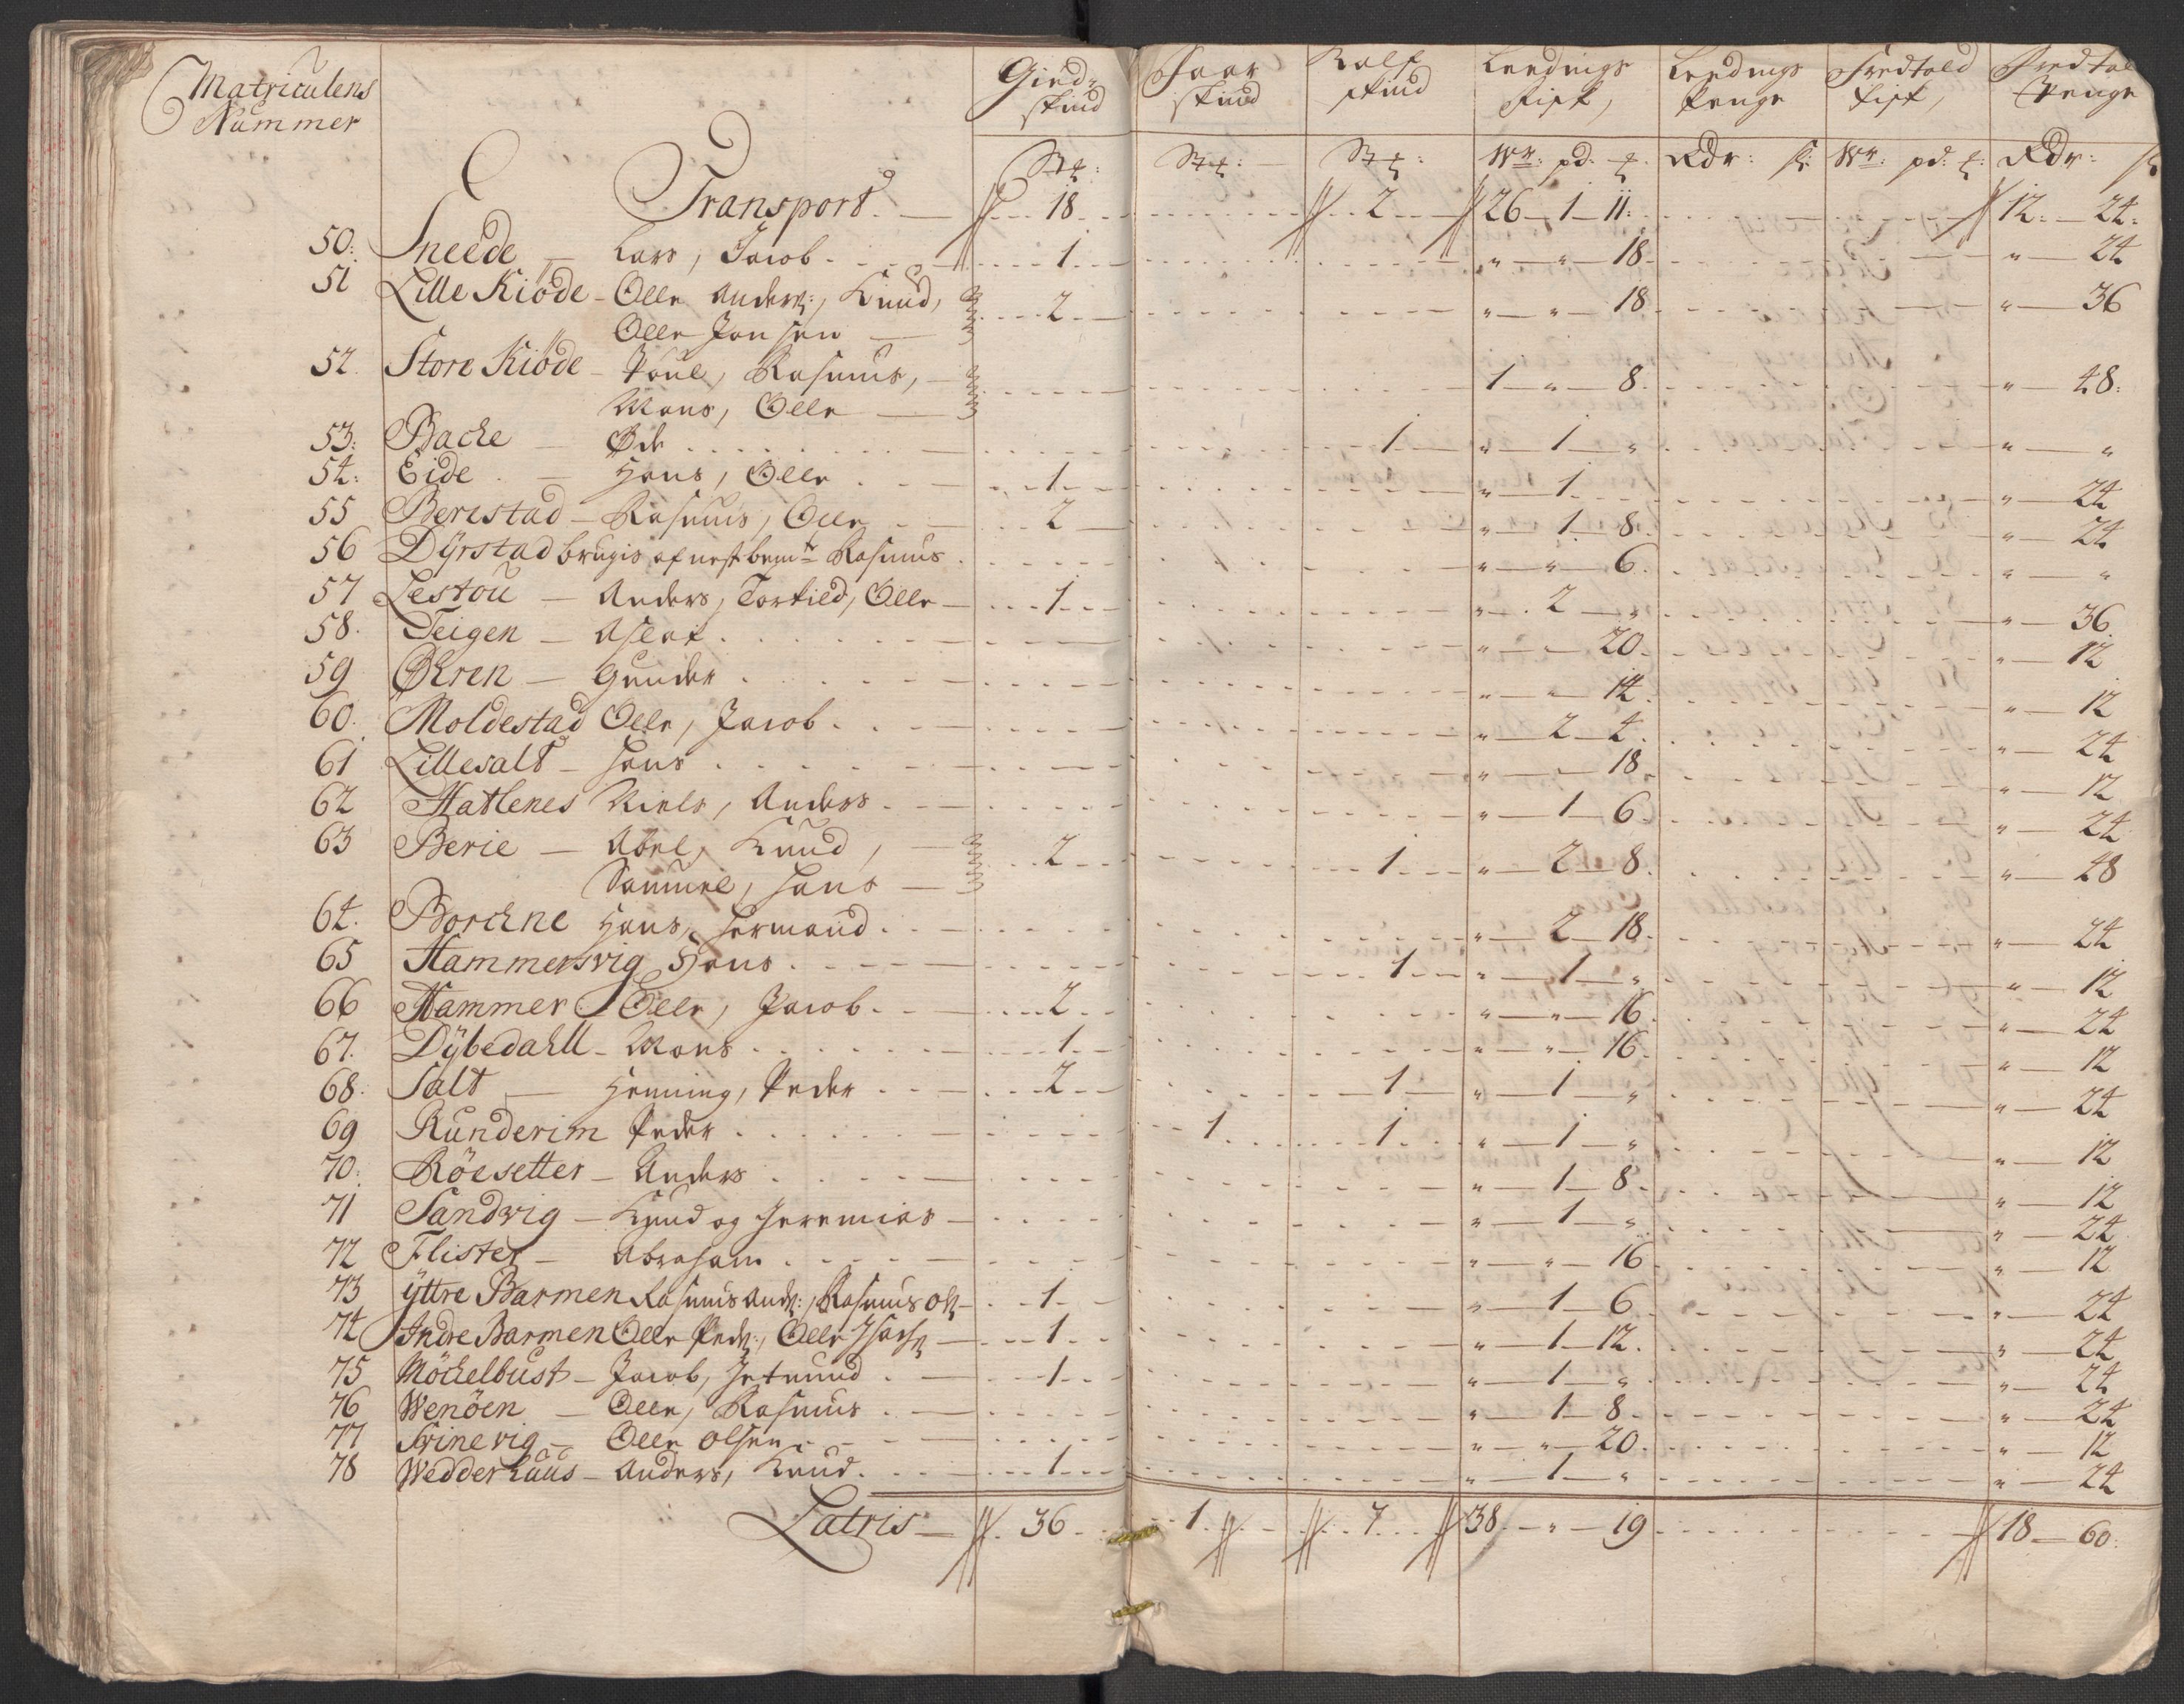 Matriculens Nummer | Gied- skind | Faar skind | Kalf skind | Leedings Fisk, | Leedings Penge | Fredtold Fisk, | Fredtol Penge
Stk: | Stk: | Stk: | Wr: pd: | Rdr: | Wr: pd: | Rdr:
Transport. — 18 | 2 | 26 — 1 — 11: | 12: — 24:
50: Sneede — Lars, Jacob — 1 | " — " — 18 | " — 24
51 Lille Kiöde — Olle Anders:, Knud,
Olle Jonsen — 2 | " — " — 18 | " — 36
52. Store Kiöde — Poul, Rasmus,
Mons, Olle — 1 — " — 8 | " — 48:
53: Bache — Øde — 1 | " — 1 — " | " — "
54: Eide — Hans, Olle — 1 | " — 1 | " — 24
55 Berestad — Rasmus, Olle — 2 | " — 1 — 8 | " — 24
56 Dÿrstad brugis af nest bemte Rasmus | " — " — 6 | " — "
57 Lestou — Anders, Torkild, Olle — 1 | " — 2 — " | " — 36
58. Teigen — Aslak | " — " — 20 | " — 12
59 Øhren — Gunder | " — " — 14 | " — 12
60. Moldestad Olle, Jacob | " — 2 — 4 | " — 24
61 Lillesalt — Hans | " — " — 18 | " — 12
62 Hatlenes Niels, Anders | " — 1 — 6 | " — 24
63 Berie — Abel, Knud,
Samuel, Hans — 2 | 1 | " — 2 — 8 | " — 48
64. Borchne Hans, Hermand | " — 2 — 18 | " — 24
65 Hammersvig Hans | 1 | " — 1 — " | " — 12
66 Hammer Olle, Jacob — 2 | " — " — 16 | " — 24
67. Dÿbedahll — Mons — 1 | " — " — 16 | " — 12
68: Salt — Henning, Peder — 2 | 1 | " — 1 — " | " — 24
69 Runderim Peder | 1 | 1 | " — 1 — " | " — 12
70: Röesetter — Anders | " — 1 — 8 | " — 12
71 Sandvig — Knud og Jeremias | " — 1 — " | " — 24
72 Flister — Abraham | " — " — 16 | " — 12
73 ÿttre Barmen Rasmus Ands:, Rasmus Ols — 1 | " — 1 — 6 | " — 24
74 Indre Barmen Olle Peds:, Olle Isachs — 1 | " — 1 — 12 | " — 24
75 Möchelbust — Jacob, Jetmund — 1 | " — 1 — " | " — 24
76 Wenöen — Olle, Rasmus | " — 1 — 8 | " — 24
77 Svinevig — Olle Olsen | " — " — 20 | " — 12
78 Wedderhuus — Anders, Knud — 1 | " — 1 — " | " — 24
Latris — 36 | 1 | 7 | 38 — " — 19 | 18 — 60: